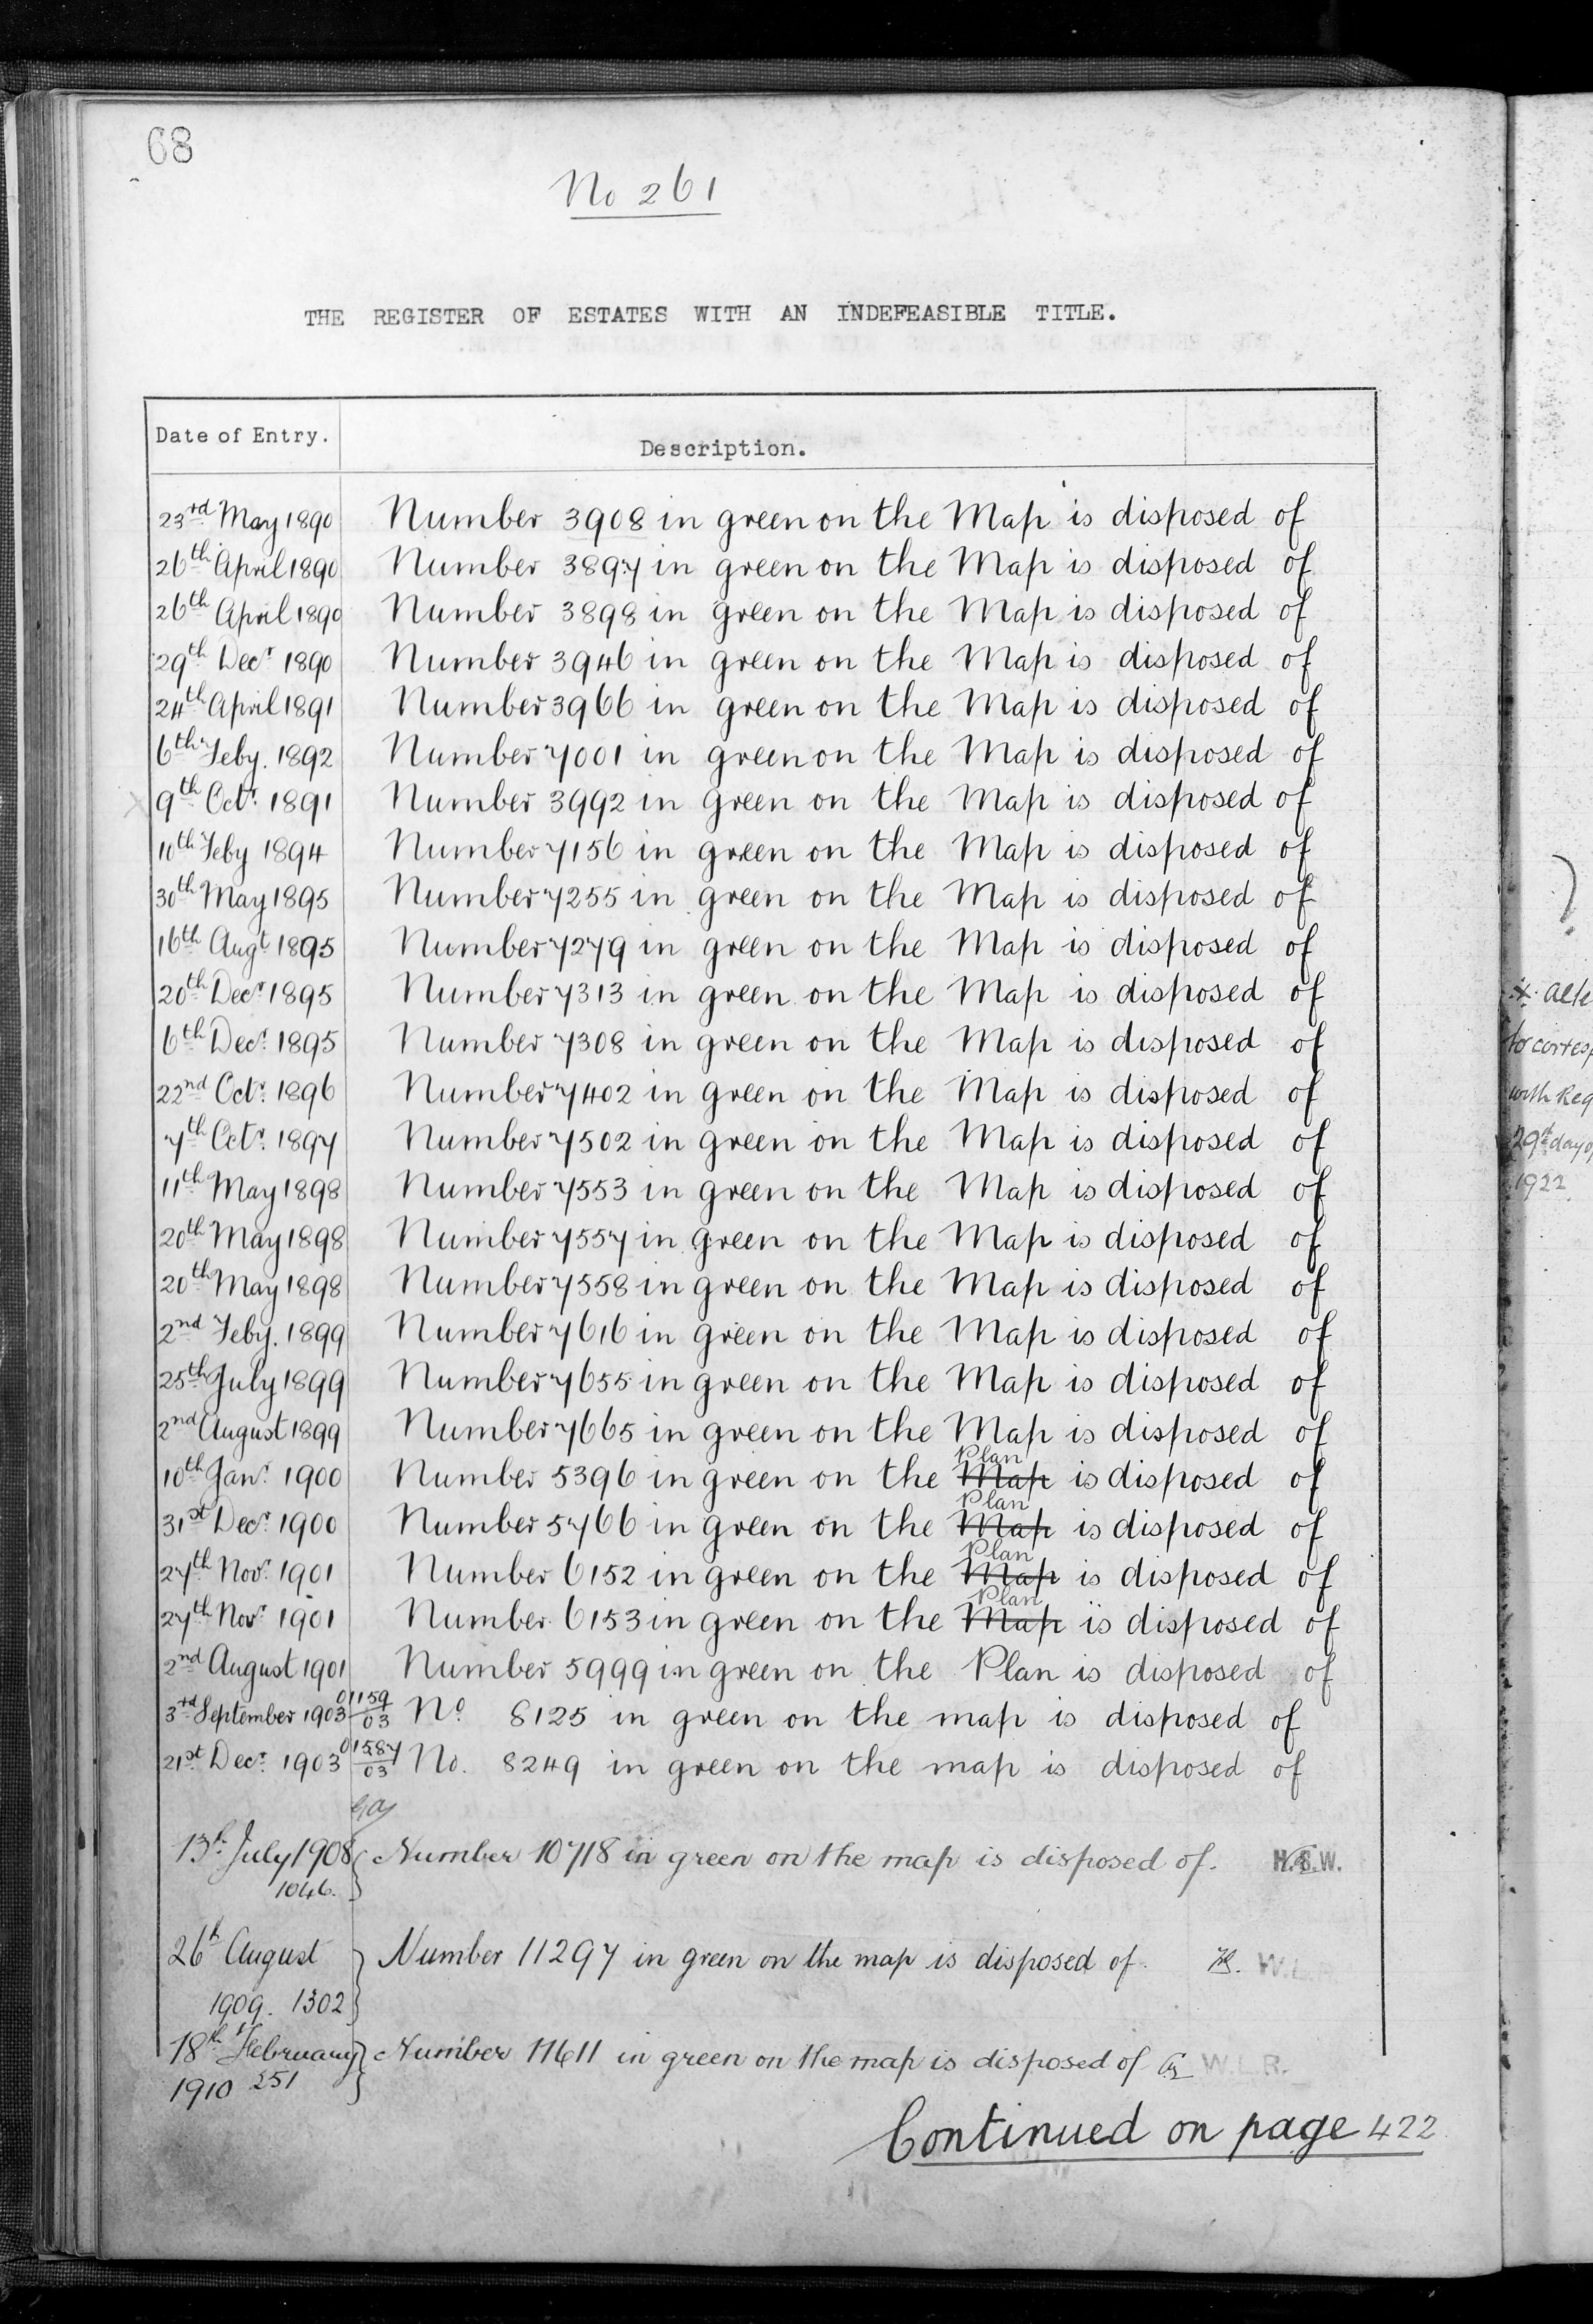 68
No 261
THE REGISTER OF ESTATES WITH AN INDEFEASIBLE TITLE.
Date of Entry. Description.
23rd May 1890 Number 3908 in green on the Map is disposed of
26th April 1890 Number 3897 in green on the Map is disposed of
26th April 1890 Number 3898 in green on the Map is disposed of
29th Decr 1890 Number 3946 in green on the Map is disposed of
24th April 1891 Number 3966 in green on the Map is disposed of
6th Feby. 1892 Number 7001 in green on the Map is disposed of
9th Octr. 1891 Number 3992 in green on the Map is disposed of
10th Feby 1894 Number 7156 in green on the Map is disposed of
30th May 1895 Number 7255 in green on the Map is disposed of
16th Augt 1895 Number 7279 in green on the Map is disposed of
20th Decr 1895 Number 7313 in green on the Map is disposed of
6th Decr. 1895 Number 7308 in green on the Map is disposed of
22nd Octr. 1896 Number 7402 in green on the Map is disposed of
7th Octr. 1897 Number 7502 in green on the Map is disposed of
11th May 1898 Number 7553 in green on the Map is disposed of
20th May 1898 Number 7557 in green on the Map is disposed of
20th May 1898 Number 7558 in green on the Map is disposed of
2nd Feby. 1899 Number 7616 in green on the Map is disposed of
25th July 1899 Number 7655 in green on the Map is disposed of
2nd August 1899 Number 7665 in green on the Map is disposed of
Plan
10th Janr. 1900 Number 5396 in green on the Map is disposed of
Plan
31st Decr. 1900 Number 5766 in green on the Map is disposed of
Plan
27th Novr. 1901 Number 6152 in green on the Map is disposed of
Plan
27th Novr 1901 Number 6153 in green on the Map is disposed of
2nd August 1901 Number 5999 in green on the Plan is disposed of
3rd September 1903 01159/03 No. 8125 in green on the map is disposed of
21st Decr. 1903 01587/03 No. 8249 in green on the map is disposed of
13th July 1908 Number 10718 in green on the map is disposed of. H.S.W.
1046.
26th August Number 11297 in green on the map is disposed of. W.L.
1909. 1302
18th February Number 11611 in green on the map is disposed of W.L.R.
1910 251
Continued on page 422
? 
* alte
to corresp
with Reg
29th day of
1922